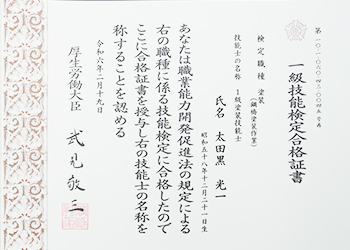 一級技能検定合格証書
検定職種 塗装
(鋼橋塗装作業)
技能士の名称 1級塗装技能士
氏名 太田黒 光一
昭和五十八年十二月二十一日生
あなたは職業能力開発促進法の規定による
右の職種に係る技能検定に合格したので
ここに合格証書を授与し右の技能士の名称を
称することを認める
令和六年二月十九日
厚生労働大臣 武見敬三